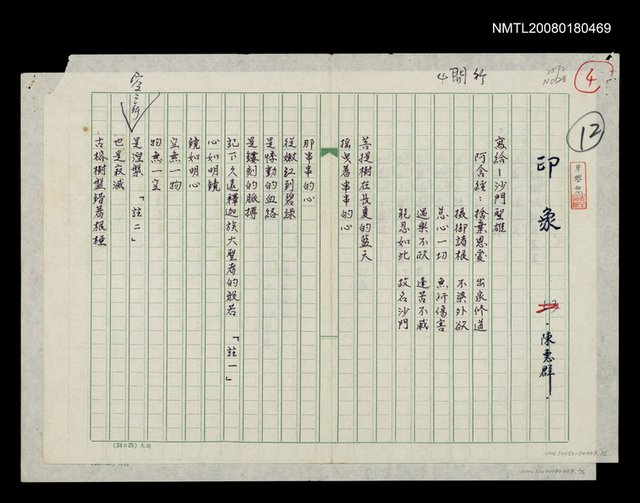 NMTL20080180469
4開行
NO:28
4
12
印象
·陳惠群·
寫給一沙門聖雄
阿含經：捨棄恩愛 出家修道
攝御諸根 不染外欲
慈心一切 無所傷害
遇樂不欣 逢苦不慼
能忍如地 故名沙門
菩提樹在長夏的藍天
搖曳着串串的心
那串串的心
從嫩紅到碧綠
是悸動的血絡
是鏤刻的脈搏
記下久遠釋迦族大聖者的般若 「註一」
心如明鏡
鏡如明心
空無一物
物無一空
空三行
是涅槃 「註二」
也是寂滅
古榕樹盤錯着根極
(24×25)
NMTL20080180469
NMTL20080180469